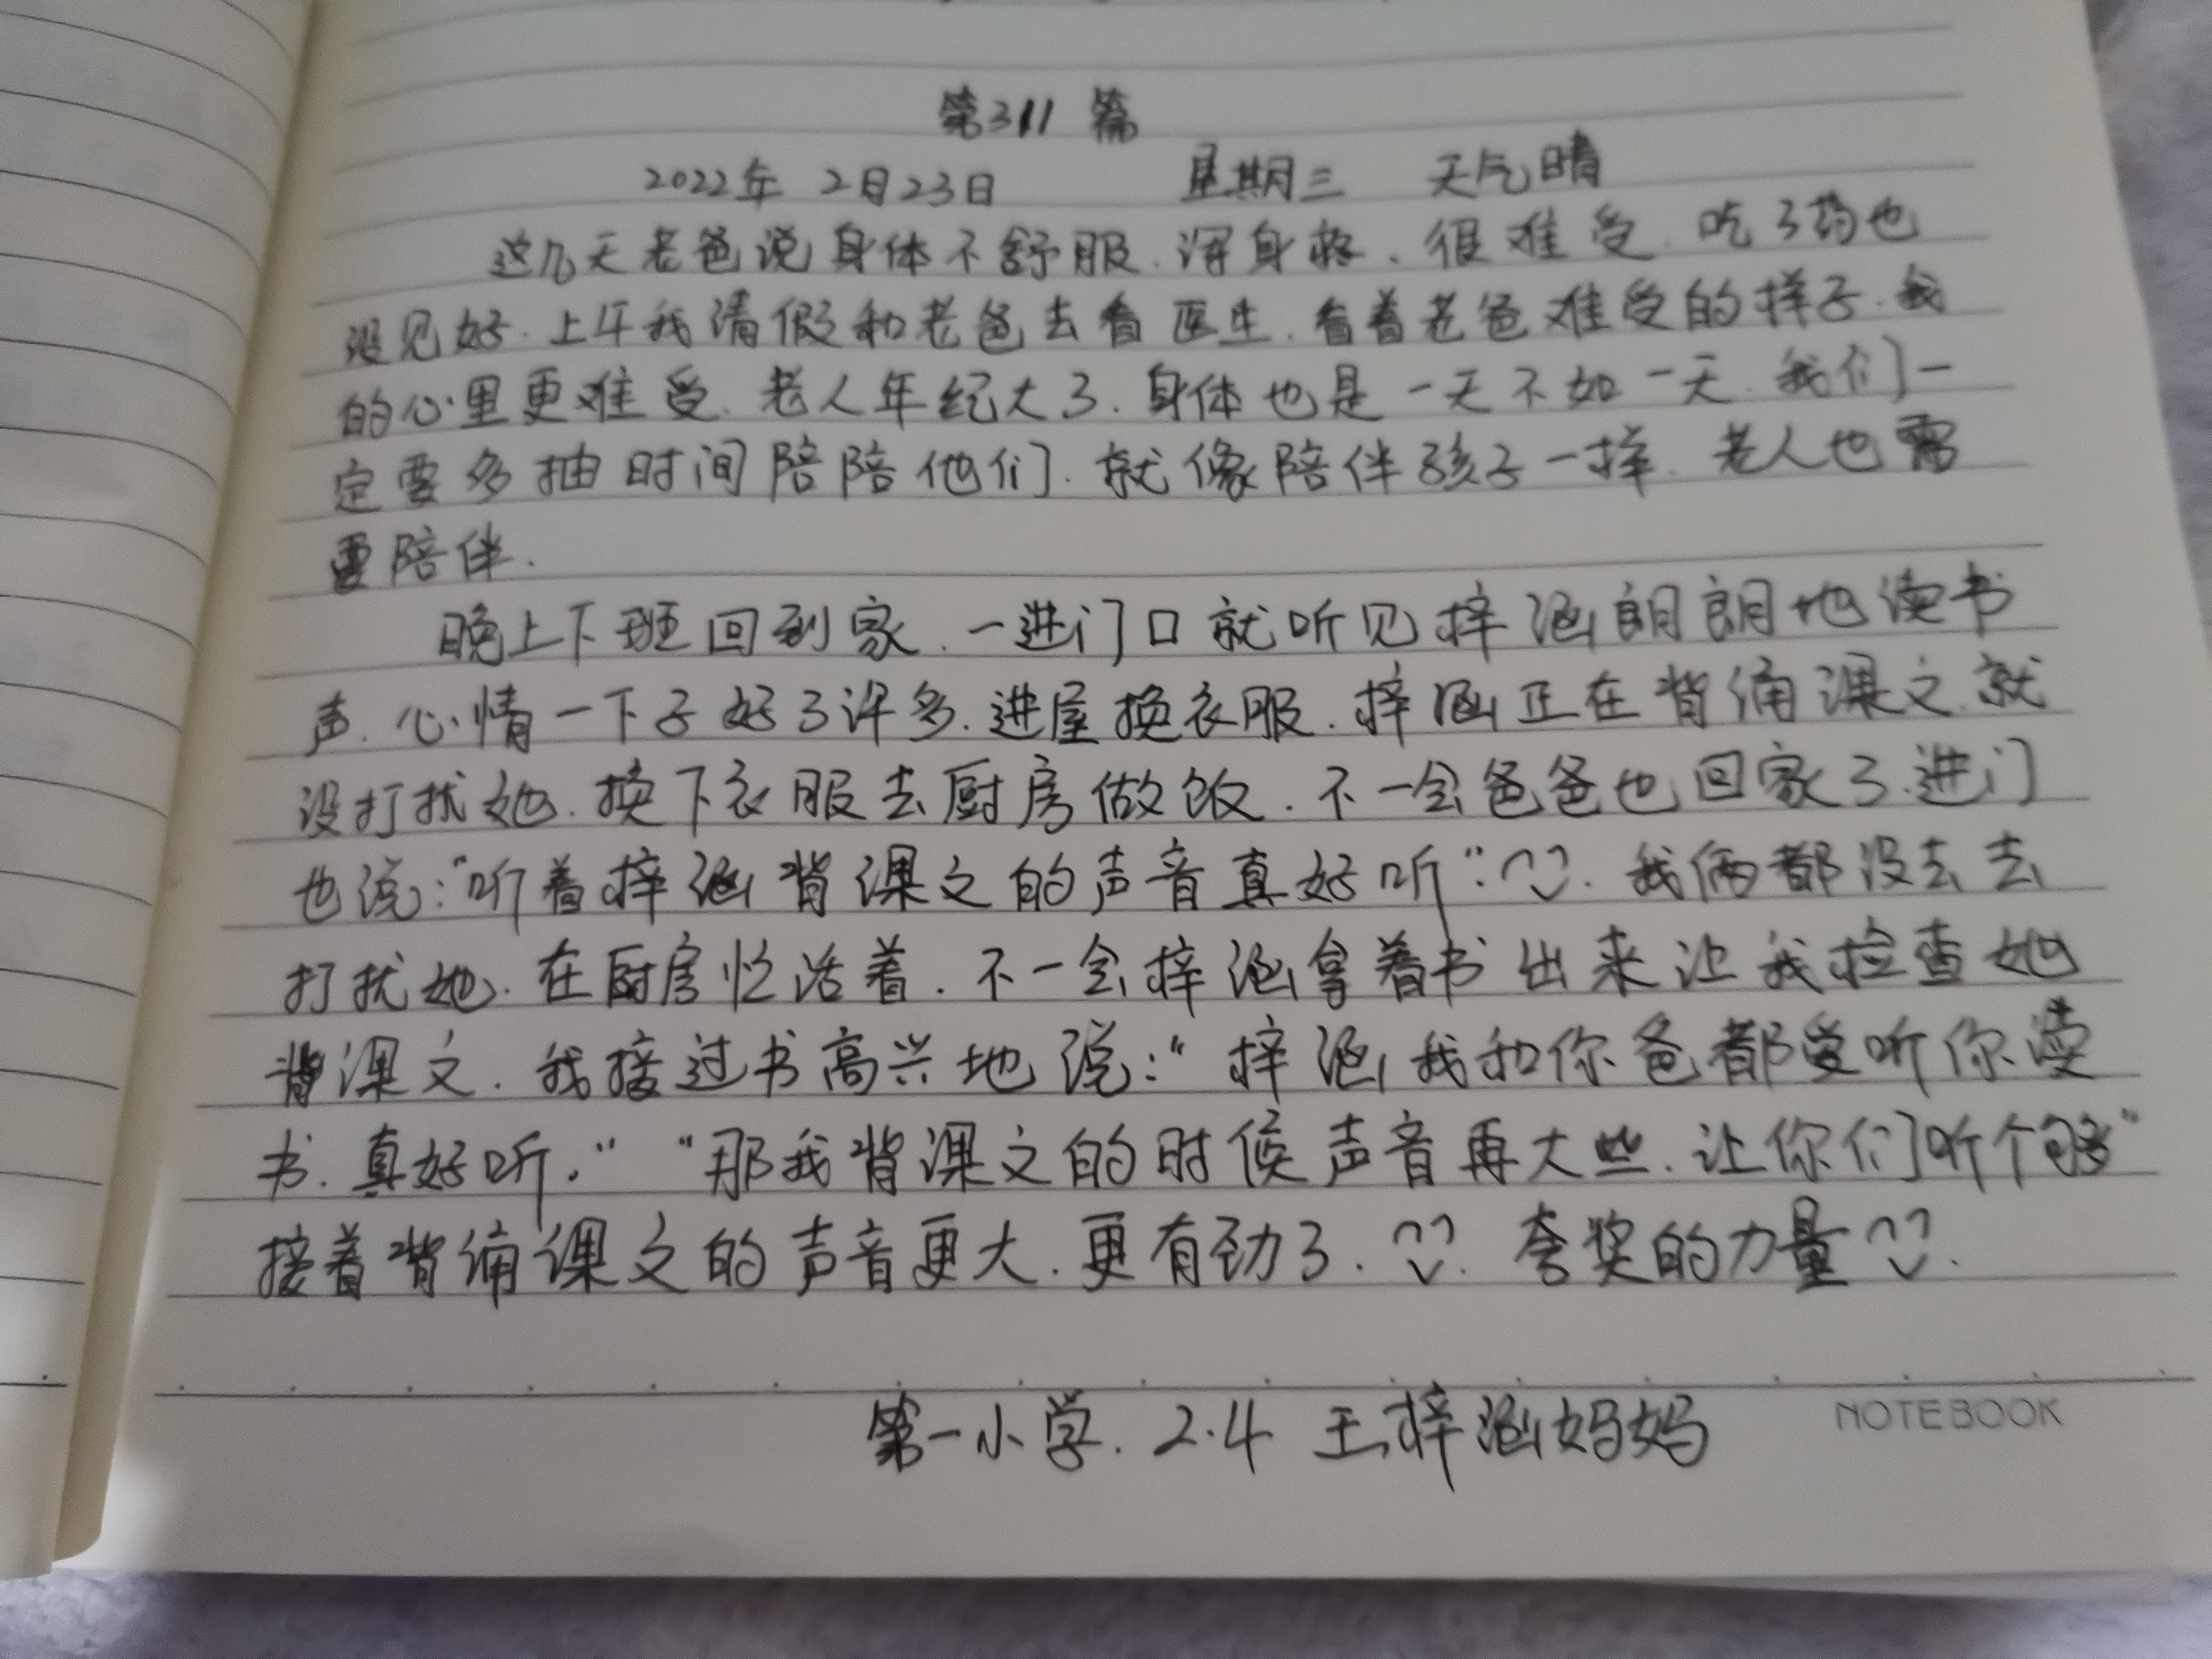 第311篇
2022年 2月23日 星期三 天气晴
这几天老爸说身体不舒服.浑身疼.很难受.吃了药也
没见好.上午我请假和老爸去看医生.看着老爸难受的样子.我
的心里更难受.老人年纪大了.身体也是一天不如一天.我们一
定要多抽时间陪陪他们.就像陪伴孩子一样.老人也需
要陪伴.
晚上下班回到家.一进门口就听见梓涵朗朗地读书
声.心情一下子好了许多.进屋换衣服.梓涵正在背诵课文.就
没打扰她.换下衣服去厨房做饭.不一会爸爸也回家了.进门
也说:"听着梓涵背课文的声音真好听".我俩都没去去
打扰她.在厨房忙活着.不一会梓涵拿着书出来让我检查她
背课文.我接过书高兴地说:"梓涵我和你爸都爱听你读
书.真好听." "那我背课文的时候声音再大些.让你们听个够"
接着背诵课文的声音更大.更有劲了.夸奖的力量.
第一小学.2.4 王梓涵妈妈
NOTEBOOK